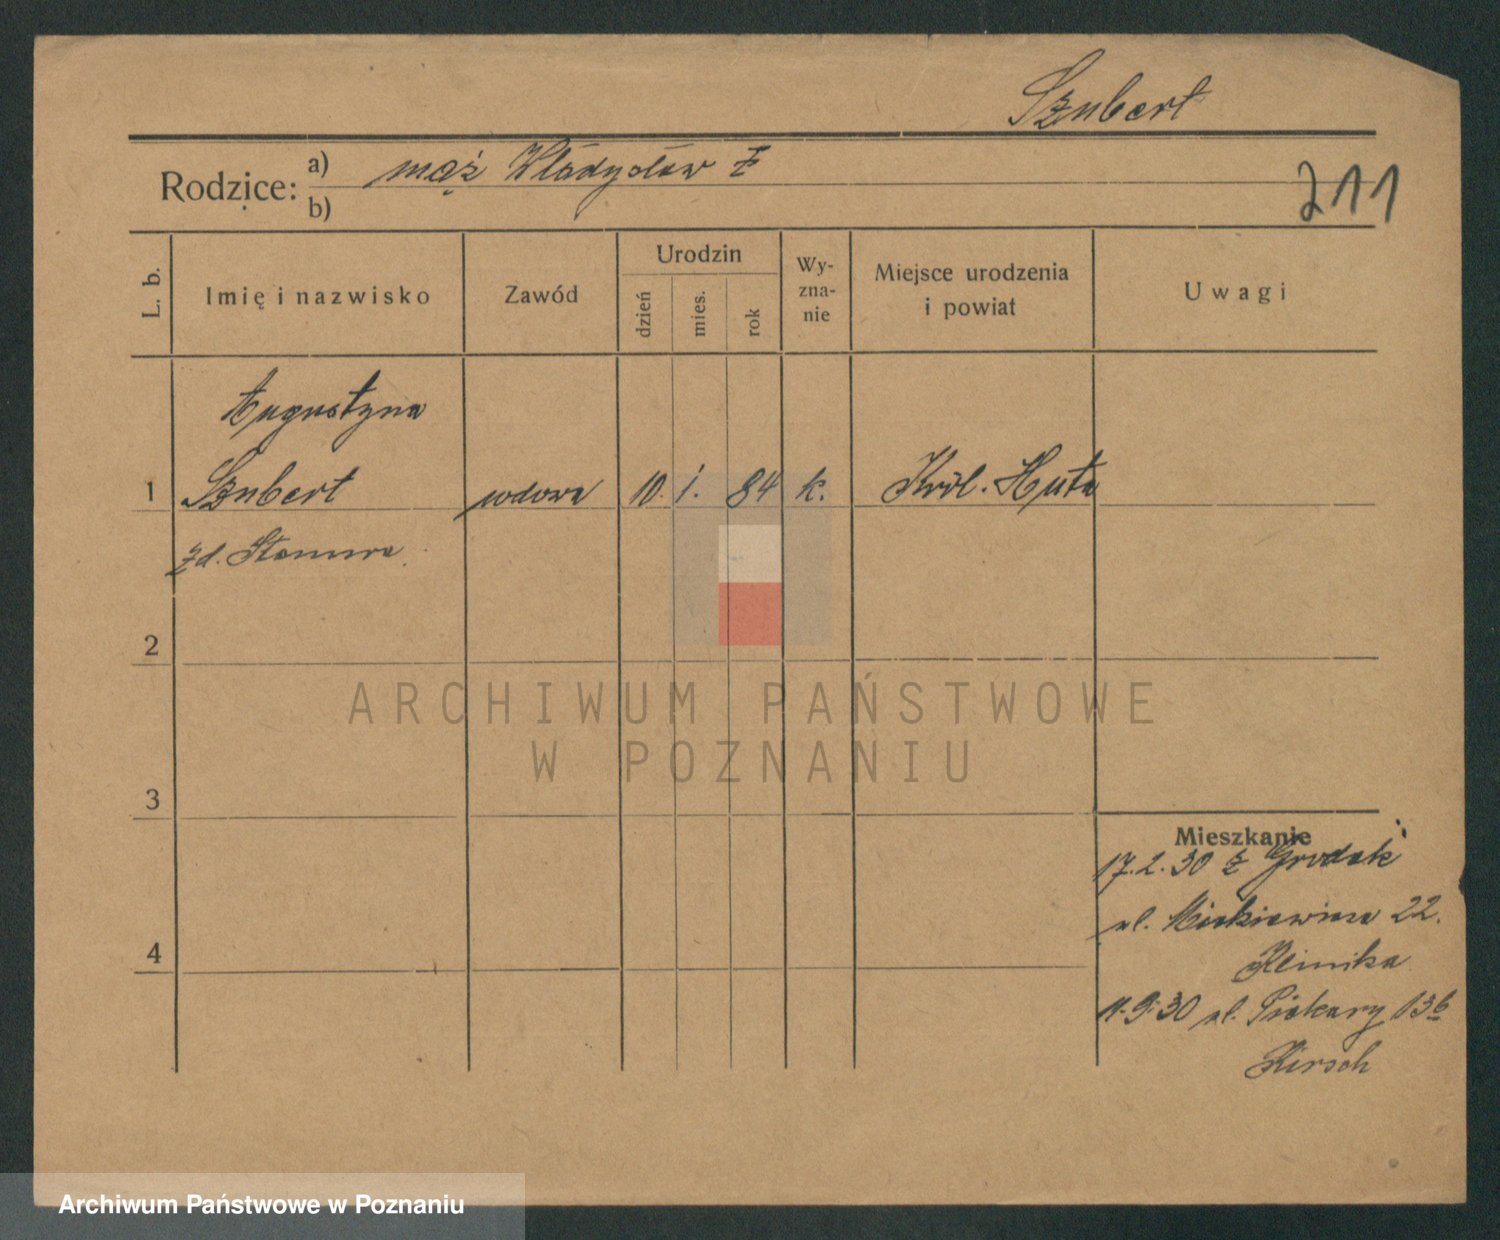 Szubert
Rodzice: a) mąż Władysław Z
b)
211
L. b.
Imię i nazwisko
Zawód
Urodzin
dzień
mies.
rok
Wy-
zna-
nie
Miejsce urodzenia
i powiat
Uwagi
Augustyna
1 Szubert wdowa 10. 1. 84 k. Król. Huta
zd.
2
ARCHIWUM PAŃSTWOWE
W POZNANIU
3
Mieszkanie
17.2.30 z Grodek
4
ul. Mickiewicza 22.
Klinika
11.9.30 ul. Piekary 13b
Hirsch
Archiwum Państwowe w Poznaniu